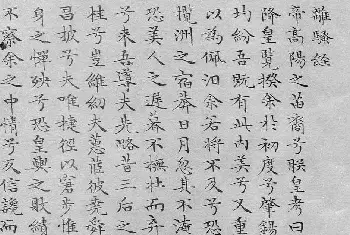 離騷經
帝高陽之苗裔兮朕皇考曰
降皇覽揆余於初度兮肇錫
均紛吾既有此內美兮又重
以為佩汩余若將不及兮恐
攬洲之宿莽日月忽其不淹
恐美人之遲暮不撫壯而弃
兮来吾導夫先路昔三后之
桂兮豈維紉夫蕙茝彼堯舜
昌披兮夫唯捷徑以窘步惟
身之憚殃兮恐皇輿之敗績
不察余之中情兮反信讒而